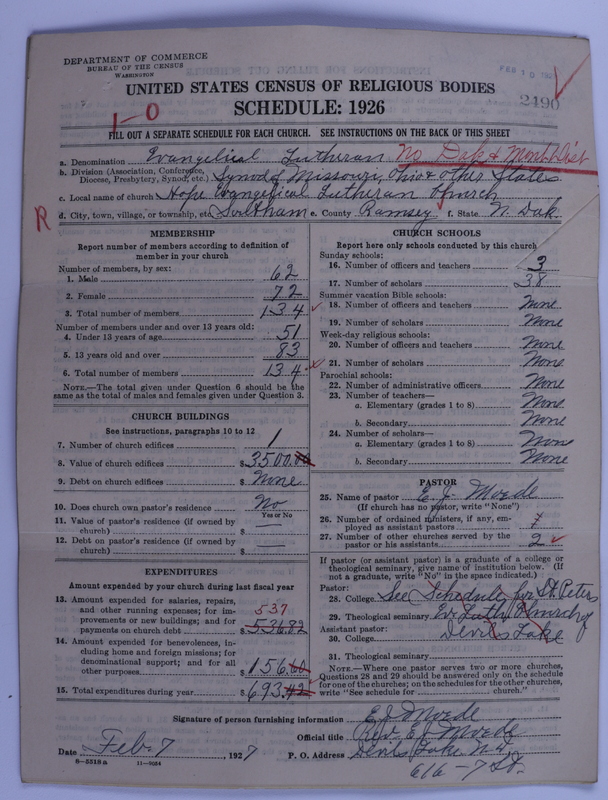 DEPARTMENT OF COMMERCE
BUREAU OF THE CENSUS
WASHINGTON
FEB 10 192
2490
UNITED STATES CENSUS OF RELIGIOUS BODIES
SCHEDULE: 1926
1-0
FILL OUT A SEPARATE SCHEDULE FOR EACH CHURCH. SEE INSTRUCTIONS ON THE BACK OF THIS SHEET
a. Denomination Evangelical Lutheran No. Dak & Mont Dist
b. Division (Association, Conference, Diocese, Presbytery, Synod, etc.) Synod of Missouri, Ohio & other States
c. Local name of church Hope Evangelical Lutheran Church
R
d. City, town, village, or township, etc. e. County Ramsey f. State N. Dak
MEMBERSHIP
Report number of members according to definition of
member in your church
Number of members, by sex:
1. Male 62
2. Female 72
3. Total number of members 134
Number of members under and over 13 years old:
4. Under 13 years of age 51
5. 13 years old and over 83
6. Total number of members 134
NOTE.—The total given under Question 6 should be the
same as the total of males and females given under Question 3.
CHURCH BUILDINGS
See instructions, paragraphs 10 to 12
7. Number of church edifices 1
8. Value of church edifices $3500.00
9. Debt on church edifices $None
10. Does church own pastor's residence No
Yes or No
11. Value of pastor's residence (if owned by
church) $ —
12. Debt on pastor's residence (if owned by
church) $ —
EXPENDITURES
Amount expended by your church during last fiscal year
13. Amount expended for salaries, repairs,
and other running expenses; for im-
provements or new buildings; and for 537
payments on church debt $536.82
14. Amount expended for benevolences, in-
cluding home and foreign missions; for
denominational support; and for all
other purposes $156.60
15. Total expenditures during year $693.42
CHURCH SCHOOLS
Report here only schools conducted by this church
Sunday schools:
16. Number of officers and teachers 3
17. Number of scholars 38
Summer vacation Bible schools:
18. Number of officers and teachers None
19. Number of scholars None
Week-day religious schools:
20. Number of officers and teachers None
21. Number of scholars None
Parochial schools:
22. Number of administrative officers None
23. Number of teachers—
a. Elementary (grades 1 to 8) None
b. Secondary None
24. Number of scholars—
a. Elementary (grades 1 to 8) None
b. Secondary None
PASTOR
25. Name of pastor E. J. Moede
(If church has no pastor, write "None")
26. Number of ordained ministers, if any, em-
ployed as assistant pastors
27. Number of other churches served by the
pastor or his assistants 2
If pastor (or assistant pastor) is a graduate of a college or
theological seminary, give name of institution below. (If
not a graduate, write "No" in the space indicated.)
Pastor:
28. College See Schedule for St. Peters
29. Theological seminary Ev. Luth. Church of
Assistant pastor:
30. College Devils Lake
31. Theological seminary
NOTE.—Where one pastor serves two or more churches,
Questions 28 and 29 should be answered only on the schedule
for one of the churches; on the schedules for the other churches
write "See schedule for church."
Signature of person furnishing information E. J. Moede
Official title Rev. E. J. Moede
Date Feb 7 1927 P. O. Address Devils Lake N.D.
8-5518a 11-9054
616 - 7 St.